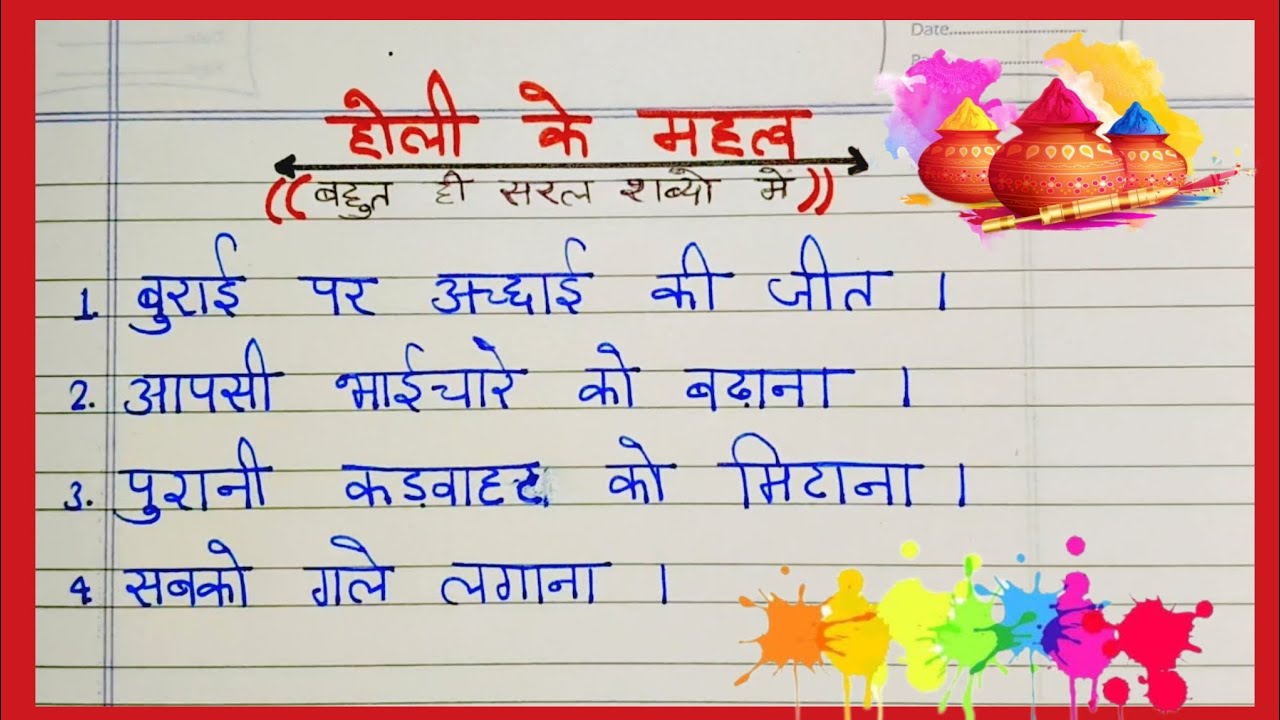 Date
होली के महत्व
((बहुत ही सरल शब्दो में))
1. बुराई पर अच्छाई की जीत ।
2. आपसी भाईचारे को बढ़ाना ।
3. पुरानी कड़वाहट को मिटाना ।
4 सबको गले लगाना ।